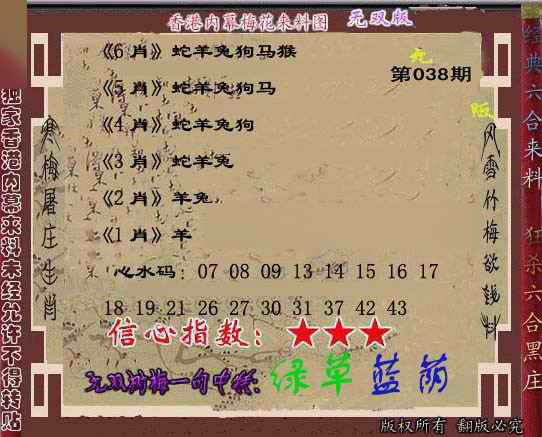 香港内幕梅花来料图 无双版
《6 肖》蛇羊兔狗马猴
《5 肖》蛇羊兔狗马
《4 肖》蛇羊兔狗
《3 肖》蛇羊兔
《2 肖》羊兔
《1 肖》羊
第038期
无
版
心水码：07 08 09 13 14 15 16 17
18 19 21 26 27 30 31 37 42 43
信心指数：★★★
无双测梅一句中特：绿草蓝荫
独家香港内幕来料未经允许不得转贴
寒梅屠庄生肖
风雪竹梅欲钱料
经典六合来料
狂杀六合黑庄
版权所有 翻版必究